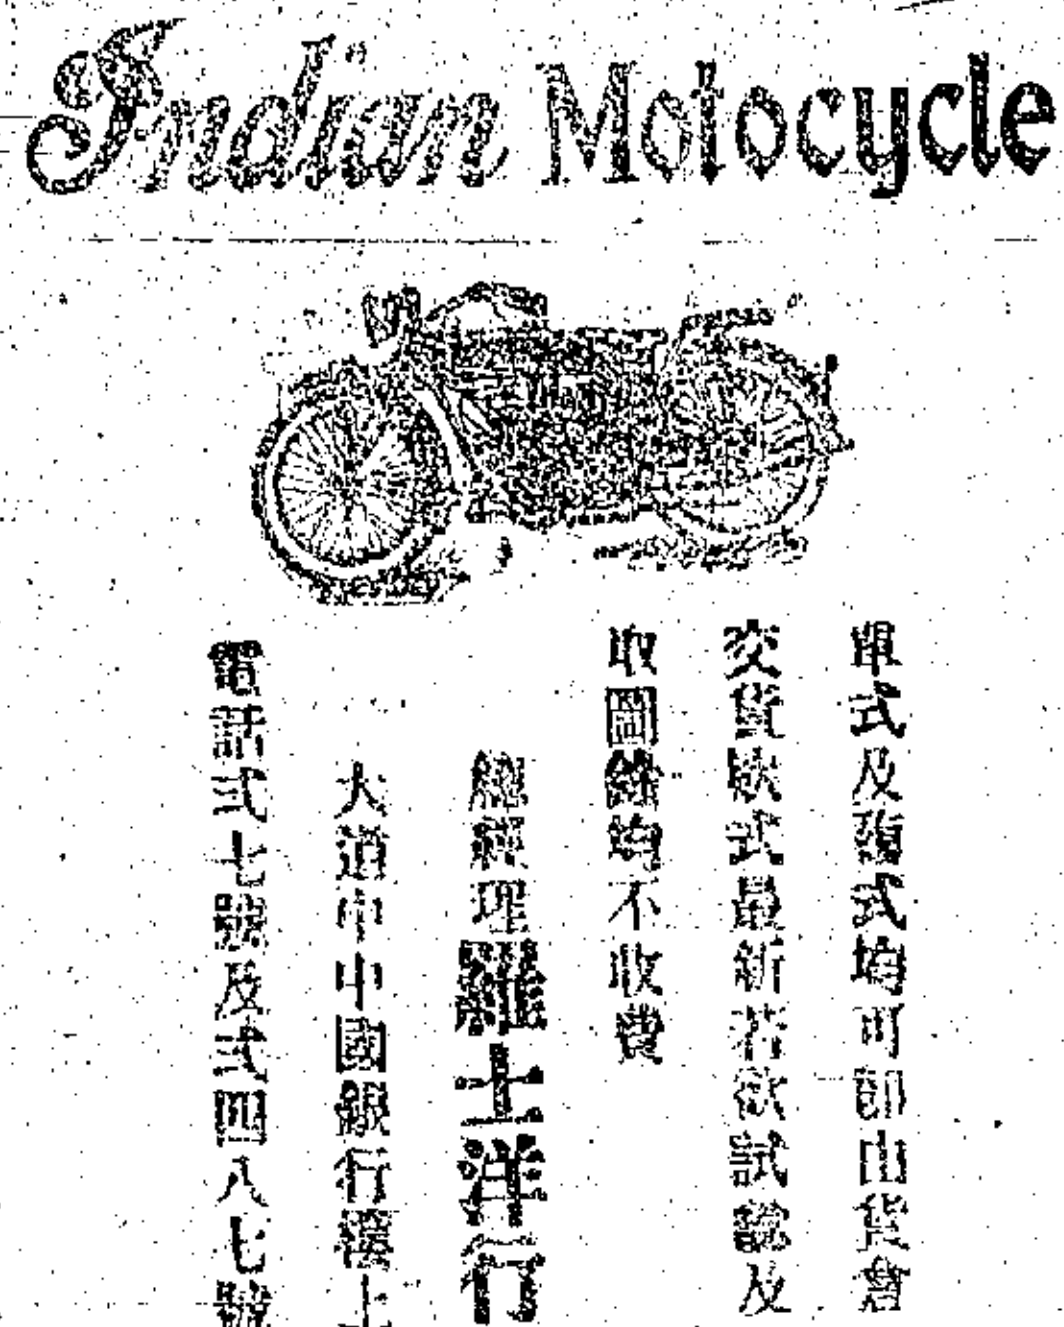 Indian Motocycle
單式及孖式均可即由貨倉
交貨欵式最新若欲試認及
取圖錄均不收費
總經理羅士洋行
大道中中國銀行樓上
電話弍七號及弍四八七號